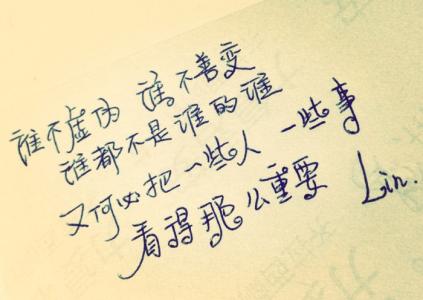 谁不虚伪 谁不善变
谁都不是谁的谁
又何必把一些人 一些事
看得那么重要 Lin.